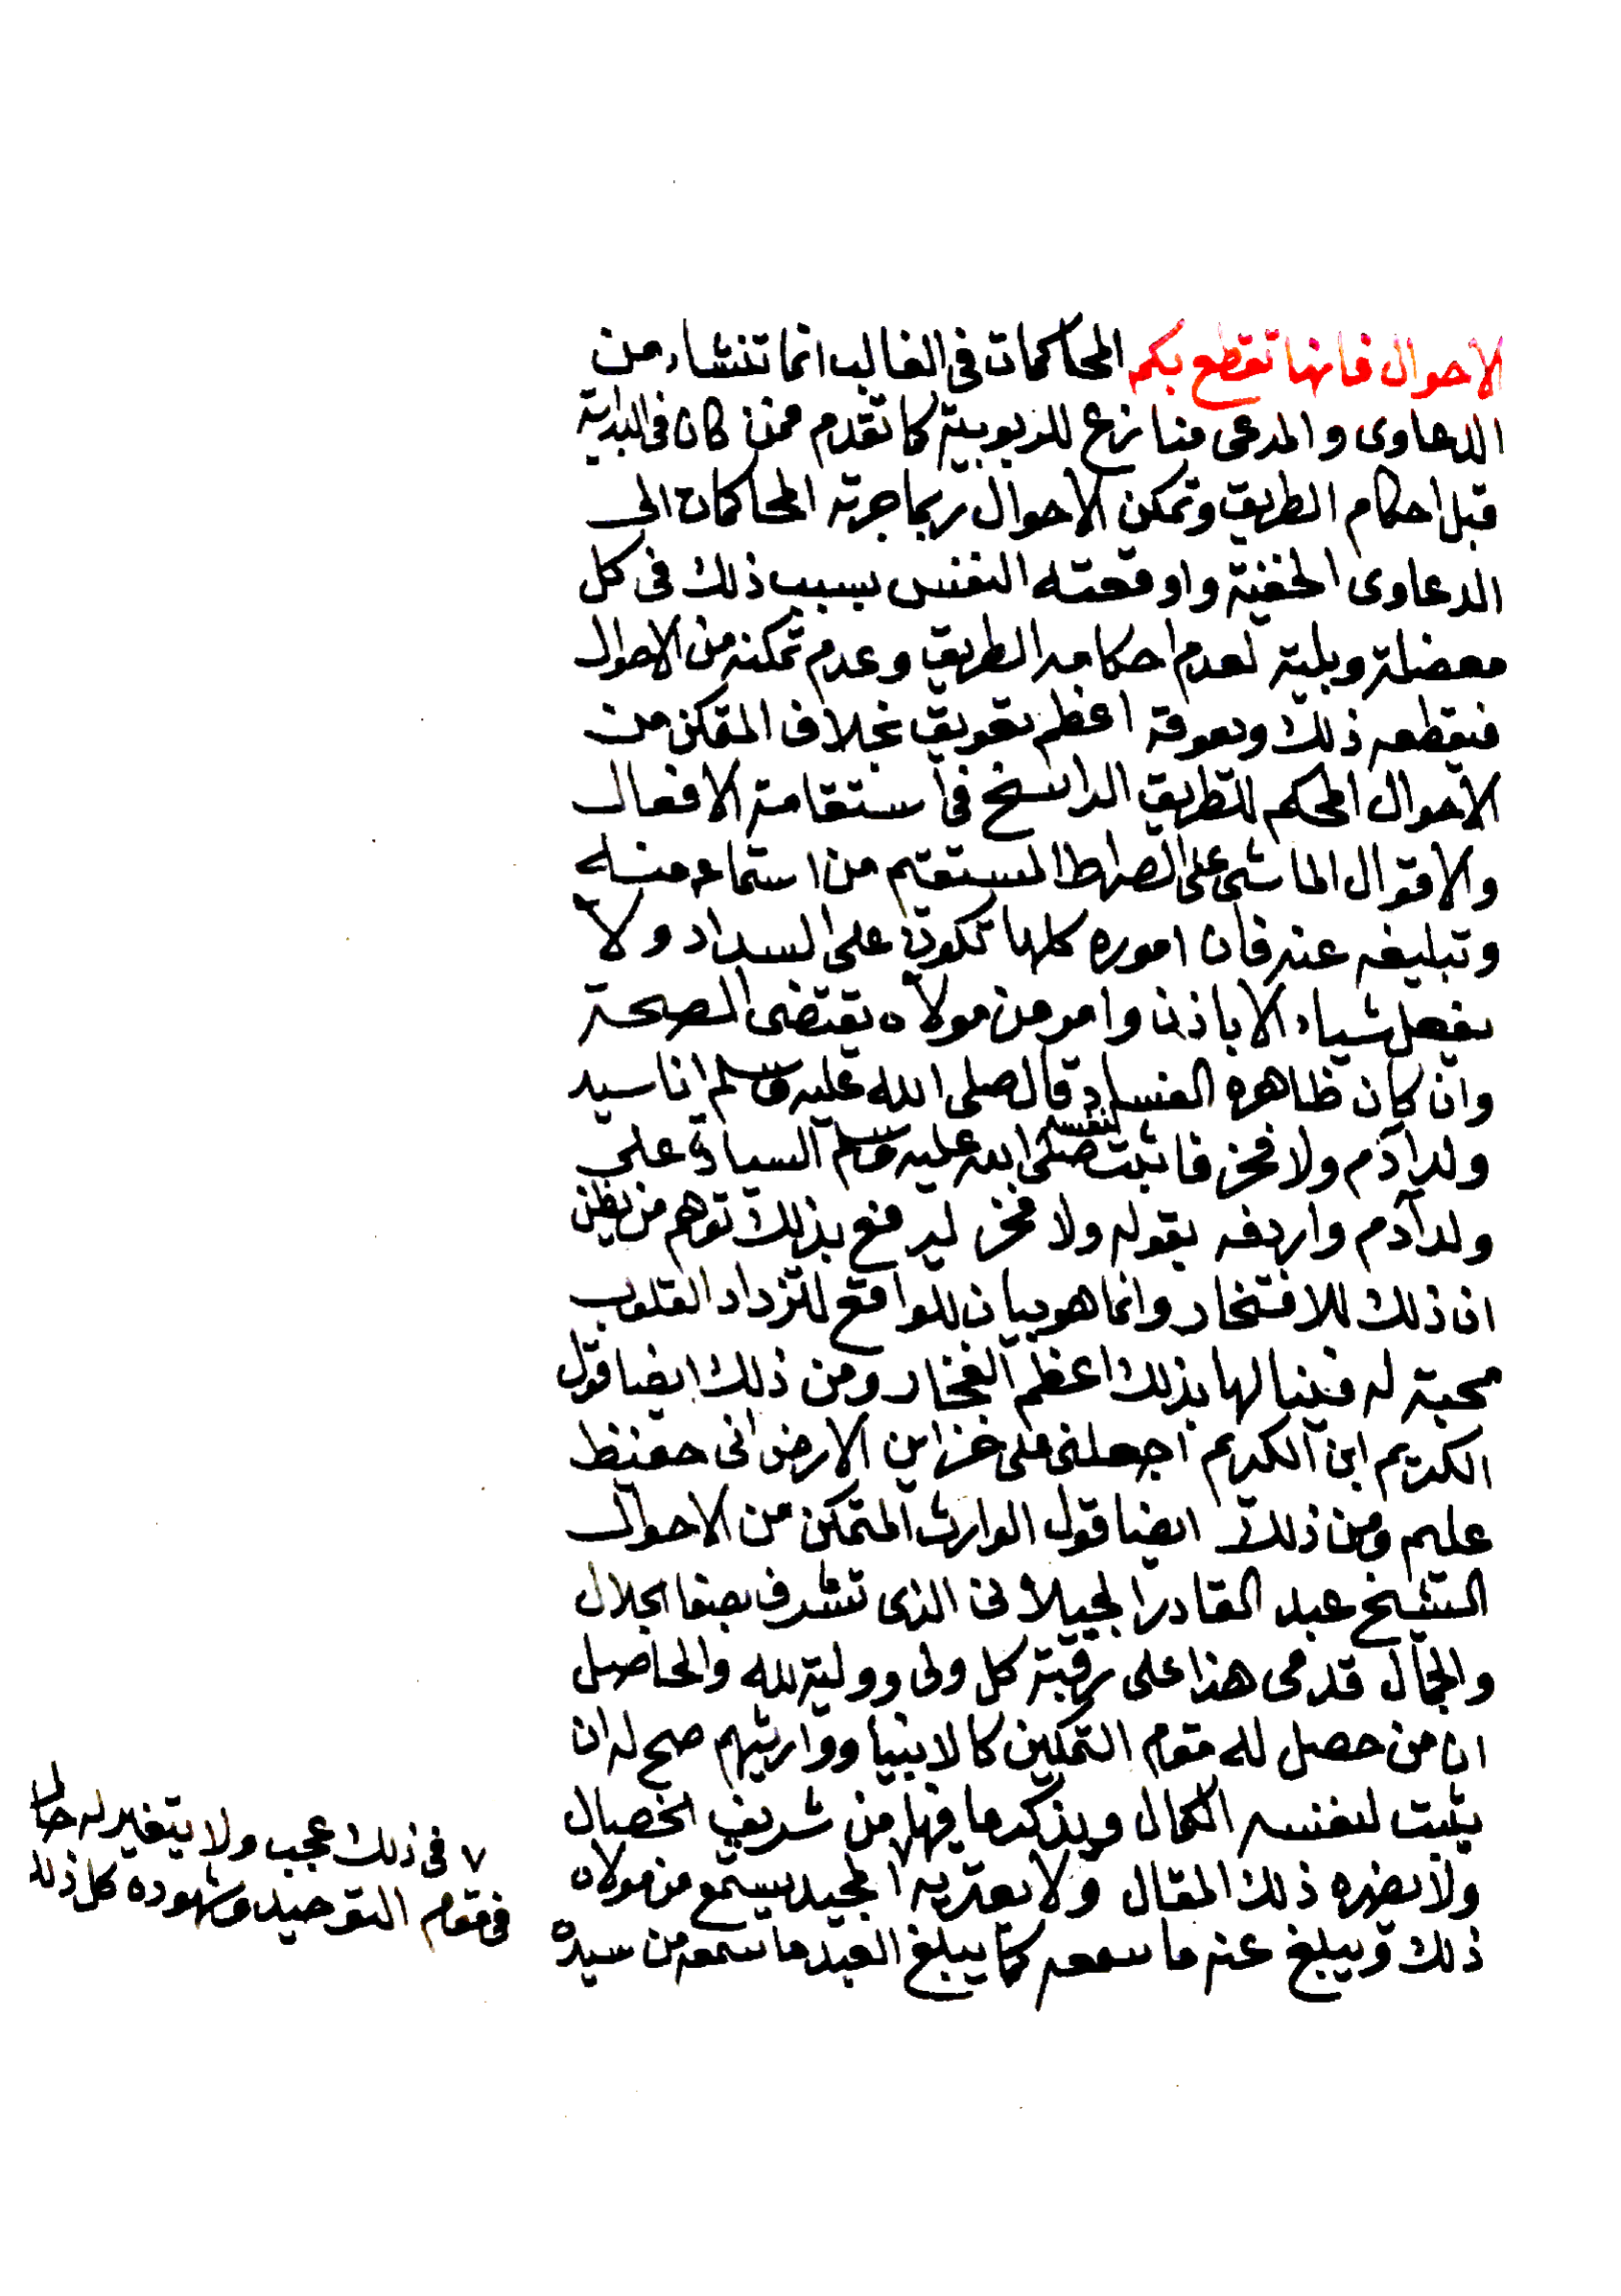 الاحوال فانها تقطع بكم المحاكمات فى الغالب انما تنشاء من
الدعاوى والمدعى منازع للربوبية كما تقدم فمن كان فى البداية
قبل احكام الطريق وتمكن الاحوال ربما جرته المحاكمات الى
الدعاوى الخفية واوقعته النفس بسبب ذلك فى كل
معضلة وبلية لعدم احكامه الطريق وعدم تمكنه من الاحوال
فيقطعه ذلك ويعوقه اعظم تعويق بخلاف المتمكن من
الاحوال المحكم للطريق الراسخ فى استقامة الافعال
والاقوال الماشى على الصراط المستقيم من استماع منه
وتبليغه عنه فان اموره كلها تكون على السداد ولا
يفعل شياء الا باذن وامر من مولاه يقتضى الصحة
وان كان ظاهره الفساد قال صلى الله عليه وسلم انا سيد
ولد آدم ولا فخر فاثبت لنفسه صلى الله عليه وسلم السيادة على
ولد آدم واردفه بقوله ولا فخر ليدفع بذلك توهم من يظن
ان ذلك للافتخار وانما هو بيان للواقع لتزداد القلوب
محبة له فينالها بذلك اعظم الفخار ومن ذلك ايضا قول
الكريم ابن الكريم اجعلنى على خزاين الارض انى حفيظ
عليم ومن ذلك ايضا قول الوارث المتمكن من الاحوال
الشيخ عبد القادر الجيلانى الذى تشرف بصفا الجلال
والجمال قدمى هذا على رقبة كل ولى وولية لله والحاصل
ان من حصل له مقام التمكين كالانبيا ووارثيهم صح له ان
يثبت لنفسه الكمال ويذكر ما فيها من شريف الخصال
ولا يضره ذلك المقال ولا يعتريه ٧ المجيد يستمع من مولاه
ذلك ويبلغ عنه ما سمعه كما يبلغ العبد ما سمعه من سيده
٧ فى ذلك عجب ولا يتغير له حال
فى مقام التوحيد وشهوده كل ذلك